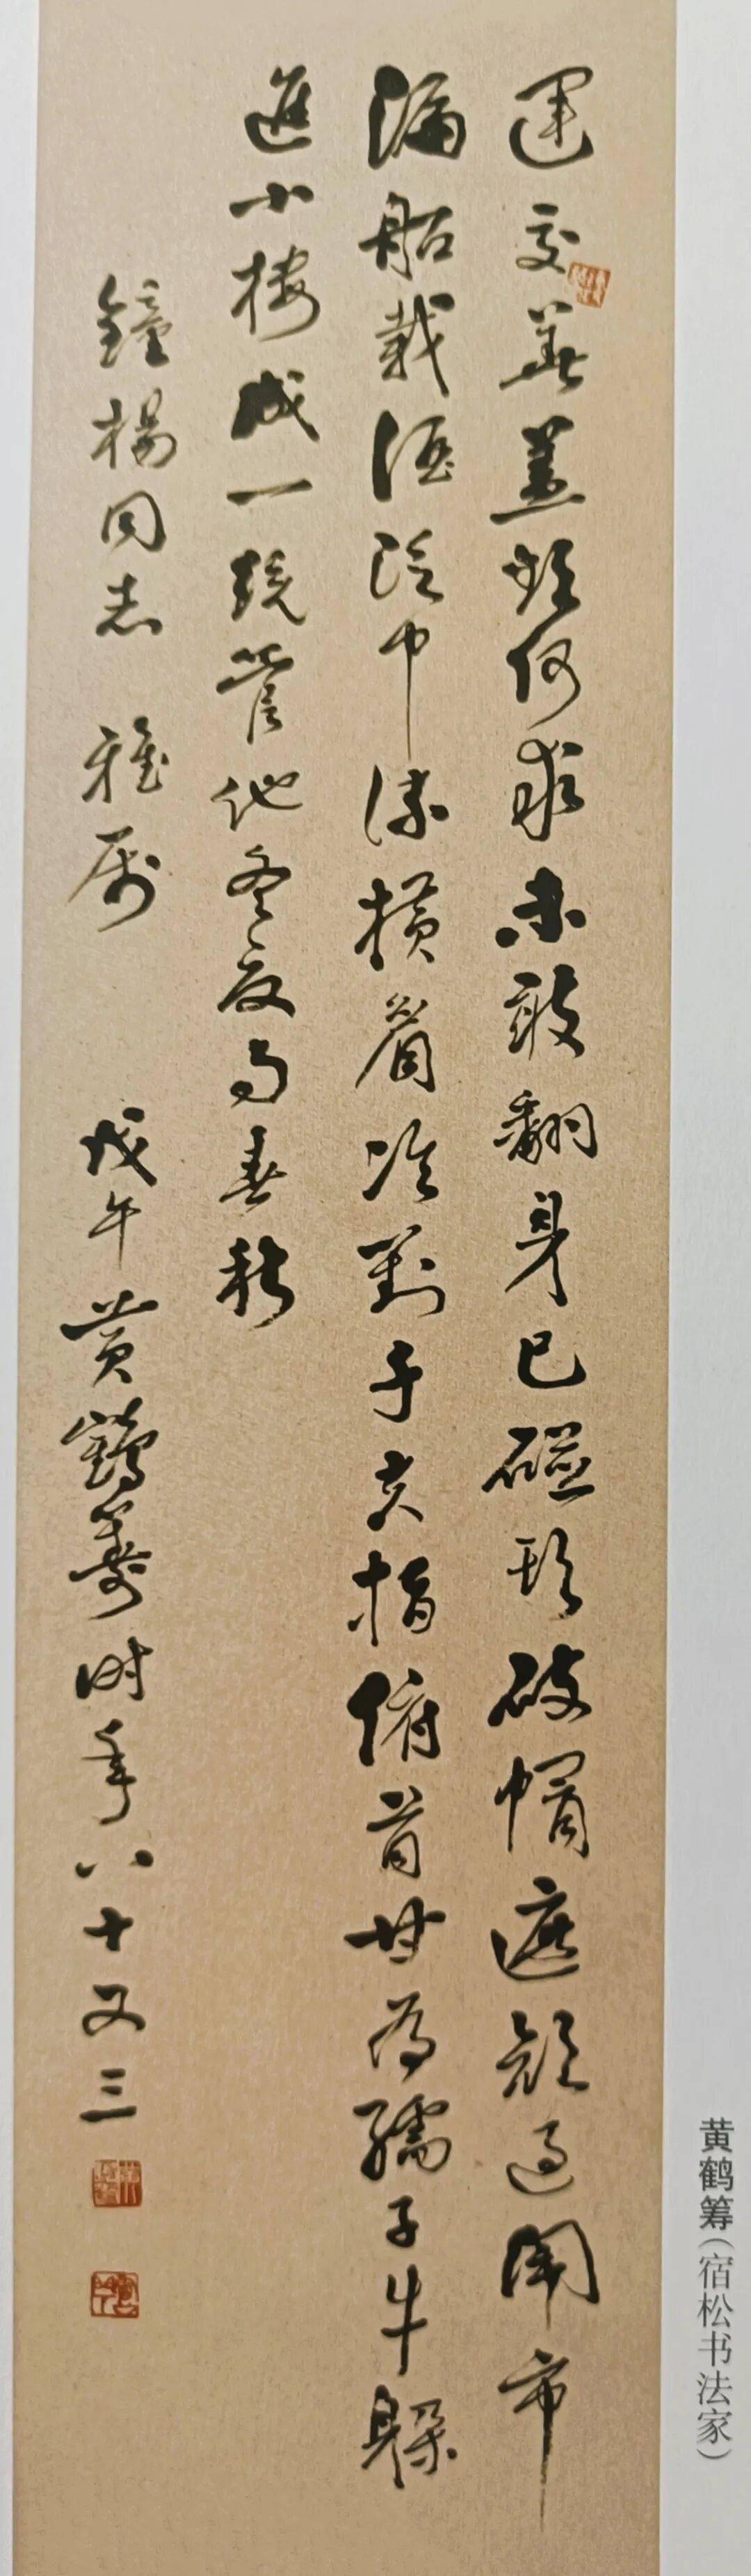 運交華蓋欲何求未敢翻身已碰頭破帽遮顏過鬧市
漏船載酒泛中流橫眉冷對千夫指俯首甘為孺子牛躲
進小樓成一統管他冬夏與春秋
鐘楊同志 雅屬 戊午黃鶴籌時年八十又三
黄鹤筹（宿松书法家）